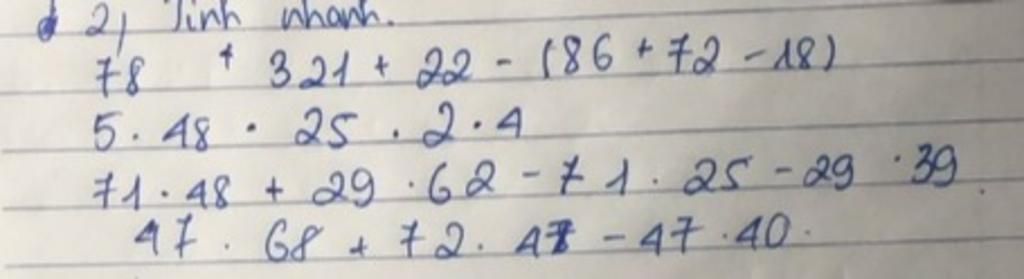 2, Tính nhanh.
78 + 321 + 22 - (86 + 72 - 18)
5 . 48 . 25 . 2 . 4
71 . 48 + 29 . 62 - 71 . 25 - 29 . 39
47 . 68 + 72 . 47 - 47 . 40 .